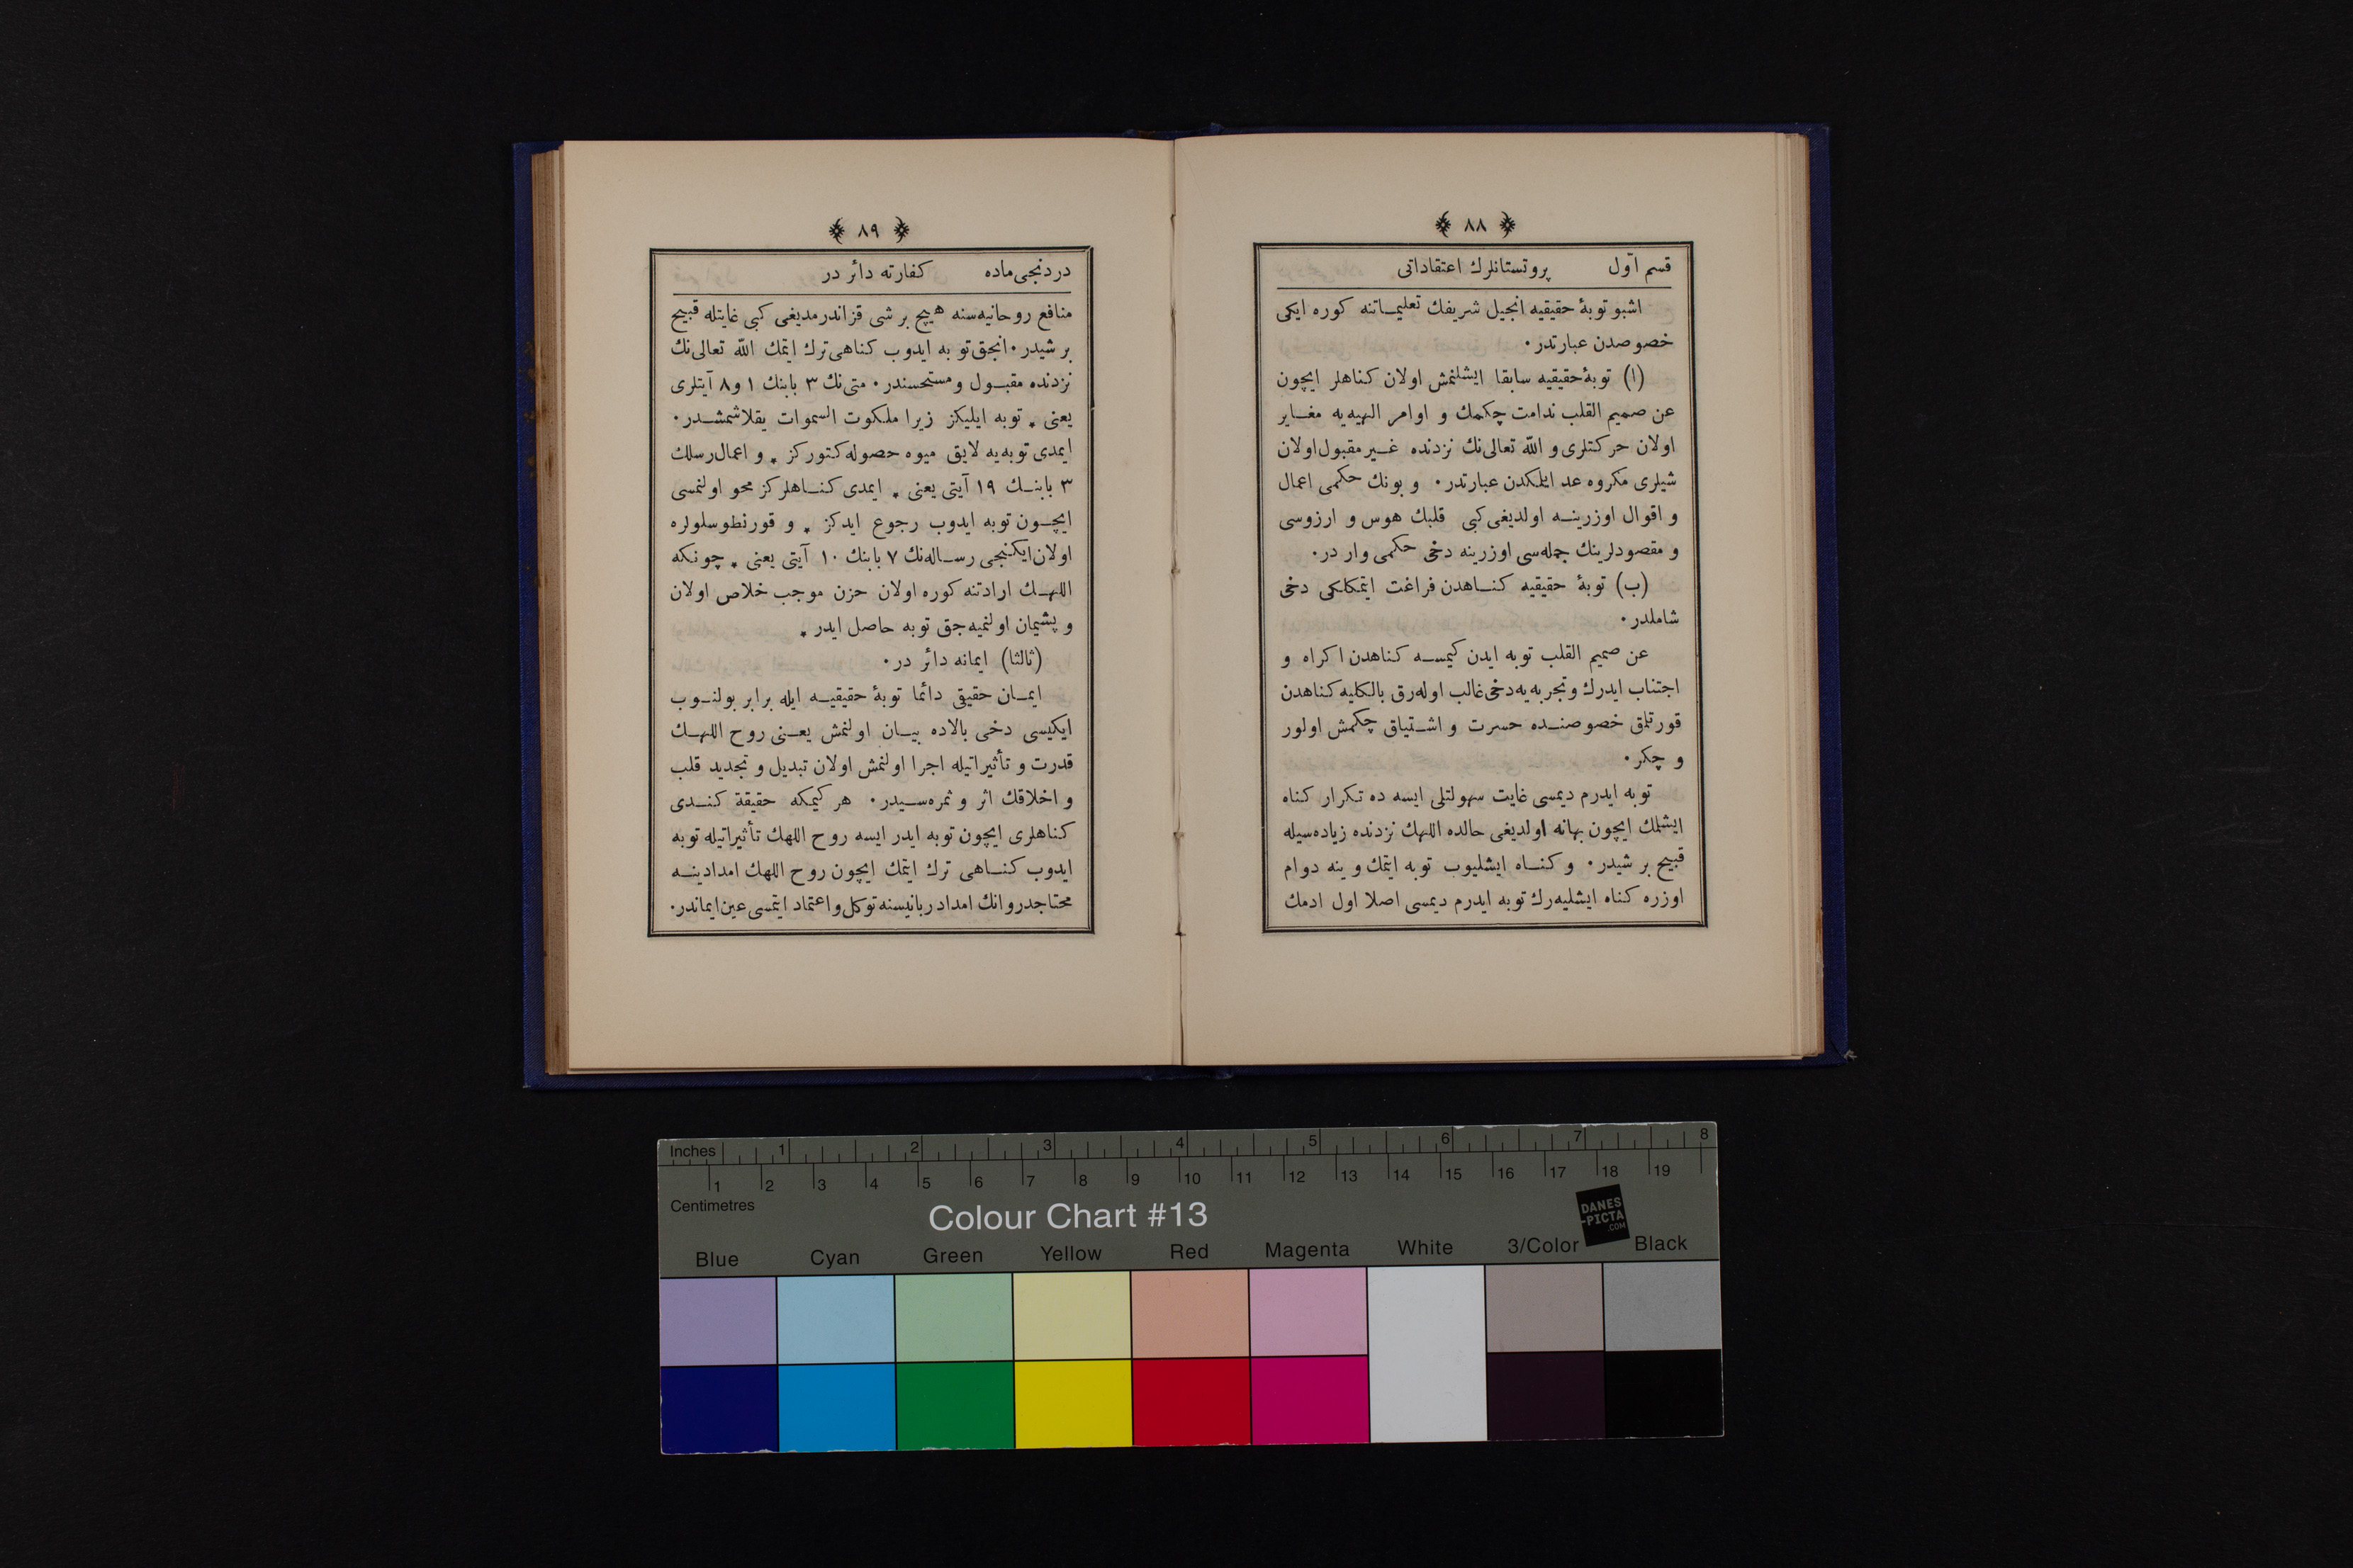 ﴿ ٨٨ ﴾
قسم اوّل پروتستانلرك اعتقاداتى
اشبو توبهٔ حقيقيه انجيل شريفك تعليماتنه كوره ايكى
خصوصدن عبارتدر٠
(ا) توبهٔ حقيقيه سابقا ايشلنمش اولان كناهلر ايچون
عن صميم القلب ندامت چكمك و اوامر الهيه‌يه مغاير
اولان حركتلرى و اللّه تعالى‌نك نزدنده غير مقبول اولان
شيلرى مكروه عد ايتمكدن عبارتدر٠ و بونك حكمى اعمال
و اقوال اوزرينه اولديغى كبى قلبك هوس و ارزوسى
و مقصودلرينك جمله‌سى اوزرينه دخى حكمى وار در٠
(ب) توبهٔ حقيقيه كناهدن فراغت ايتمكلكى دخى
شاملدر٠
عن صميم القلب توبه ايدن كيمسه كناهدن اكراه و
اجتناب ايدرك و تجربه‌يه دخى غالب اوله‌رق بالكليه كناهدن
قورتلمق خصوصنده حسرت و اشتياق چكمش اولور
و چكر٠
توبه ايدرم ديمسى غايت سهولتلى ايسه ده تكرار كناه
ايشلمك ايچون بهانه اولديغى حالده اللهك نزدنده زياده‌سيله
قبيح بر شيدر٠ و كناه ايشليوب توبه ايتمك و ينه دوام
اوزره كناه ايشليه‌رك توبه ايدرم ديمسى اصلا اول ادمك
﴿ ٨٩ ﴾
دردنجى ماده كفارته دائر در
منافع روحانيه‌سنه هيچ بر شى قزاندرمديغى كبى غايتله قبيح
بر شيدر٠ انجق توبه ايدوب كناهى ترك ايتمك اللّه تعالى‌نك
نزدنده مقبول و مستحسندر٠ متى‌نك ٣ بابنك ١ و ٨ آيتلرى
يعنى ٭ توبه ايليكز زيرا ملكوت السموات يقلاشمشدر٠
ايمدى توبه‌يه لايق ميوه حصوله كتوركز ٭ و اعمال رسلك
٣ بابنك ١٩ آيتى يعنى ٭ ايمدى كناهلركز محو اولنمسى
ايچون توبه ايدوب رجوع ايدكز ٭ و قورنطوسلولره
اولان ايكنجى رساله‌نك ٧ بابنك ١٠ آيتى يعنى ٭ چونكه
اللهك ارادتنه كوره اولان حزن موجب خلاص اولان
و پشيمان اولنميه‌جق توبه حاصل ايدر ٭
(ثالثا) ايمانه دائر در٠
ايمان حقيقى دائما توبهٔ حقيقيه ايله برابر بولنوب
ايكيسى دخى بالاده بيان اولنمش يعنى روح اللهك
قدرت و تأثيراتيله اجرا اولنمش اولان تبديل و تجديد قلب
و اخلاقك اثر و ثمره‌سيدر٠ هر كيمكه حقيقة كندى
كناهلرى ايچون توبه ايدر ايسه روح اللهك تأثيراتيله توبه
ايدوب كناهى ترك ايتمك ايچون روح اللهك امدادينه
محتاجدر و انك امداد ربانيسنه توكل و اعتماد ايتمسى عين ايماندر٠
Inches 1 2 3 4 5 6 7 8
1 2 3 4 5 6 7 8 9 10 11 12 13 14 15 16 17 18 19
Centimetres
Colour Chart #13
DANES
-PICTA
.COM
Blue Cyan Green Yellow Red Magenta White 3/Color Black